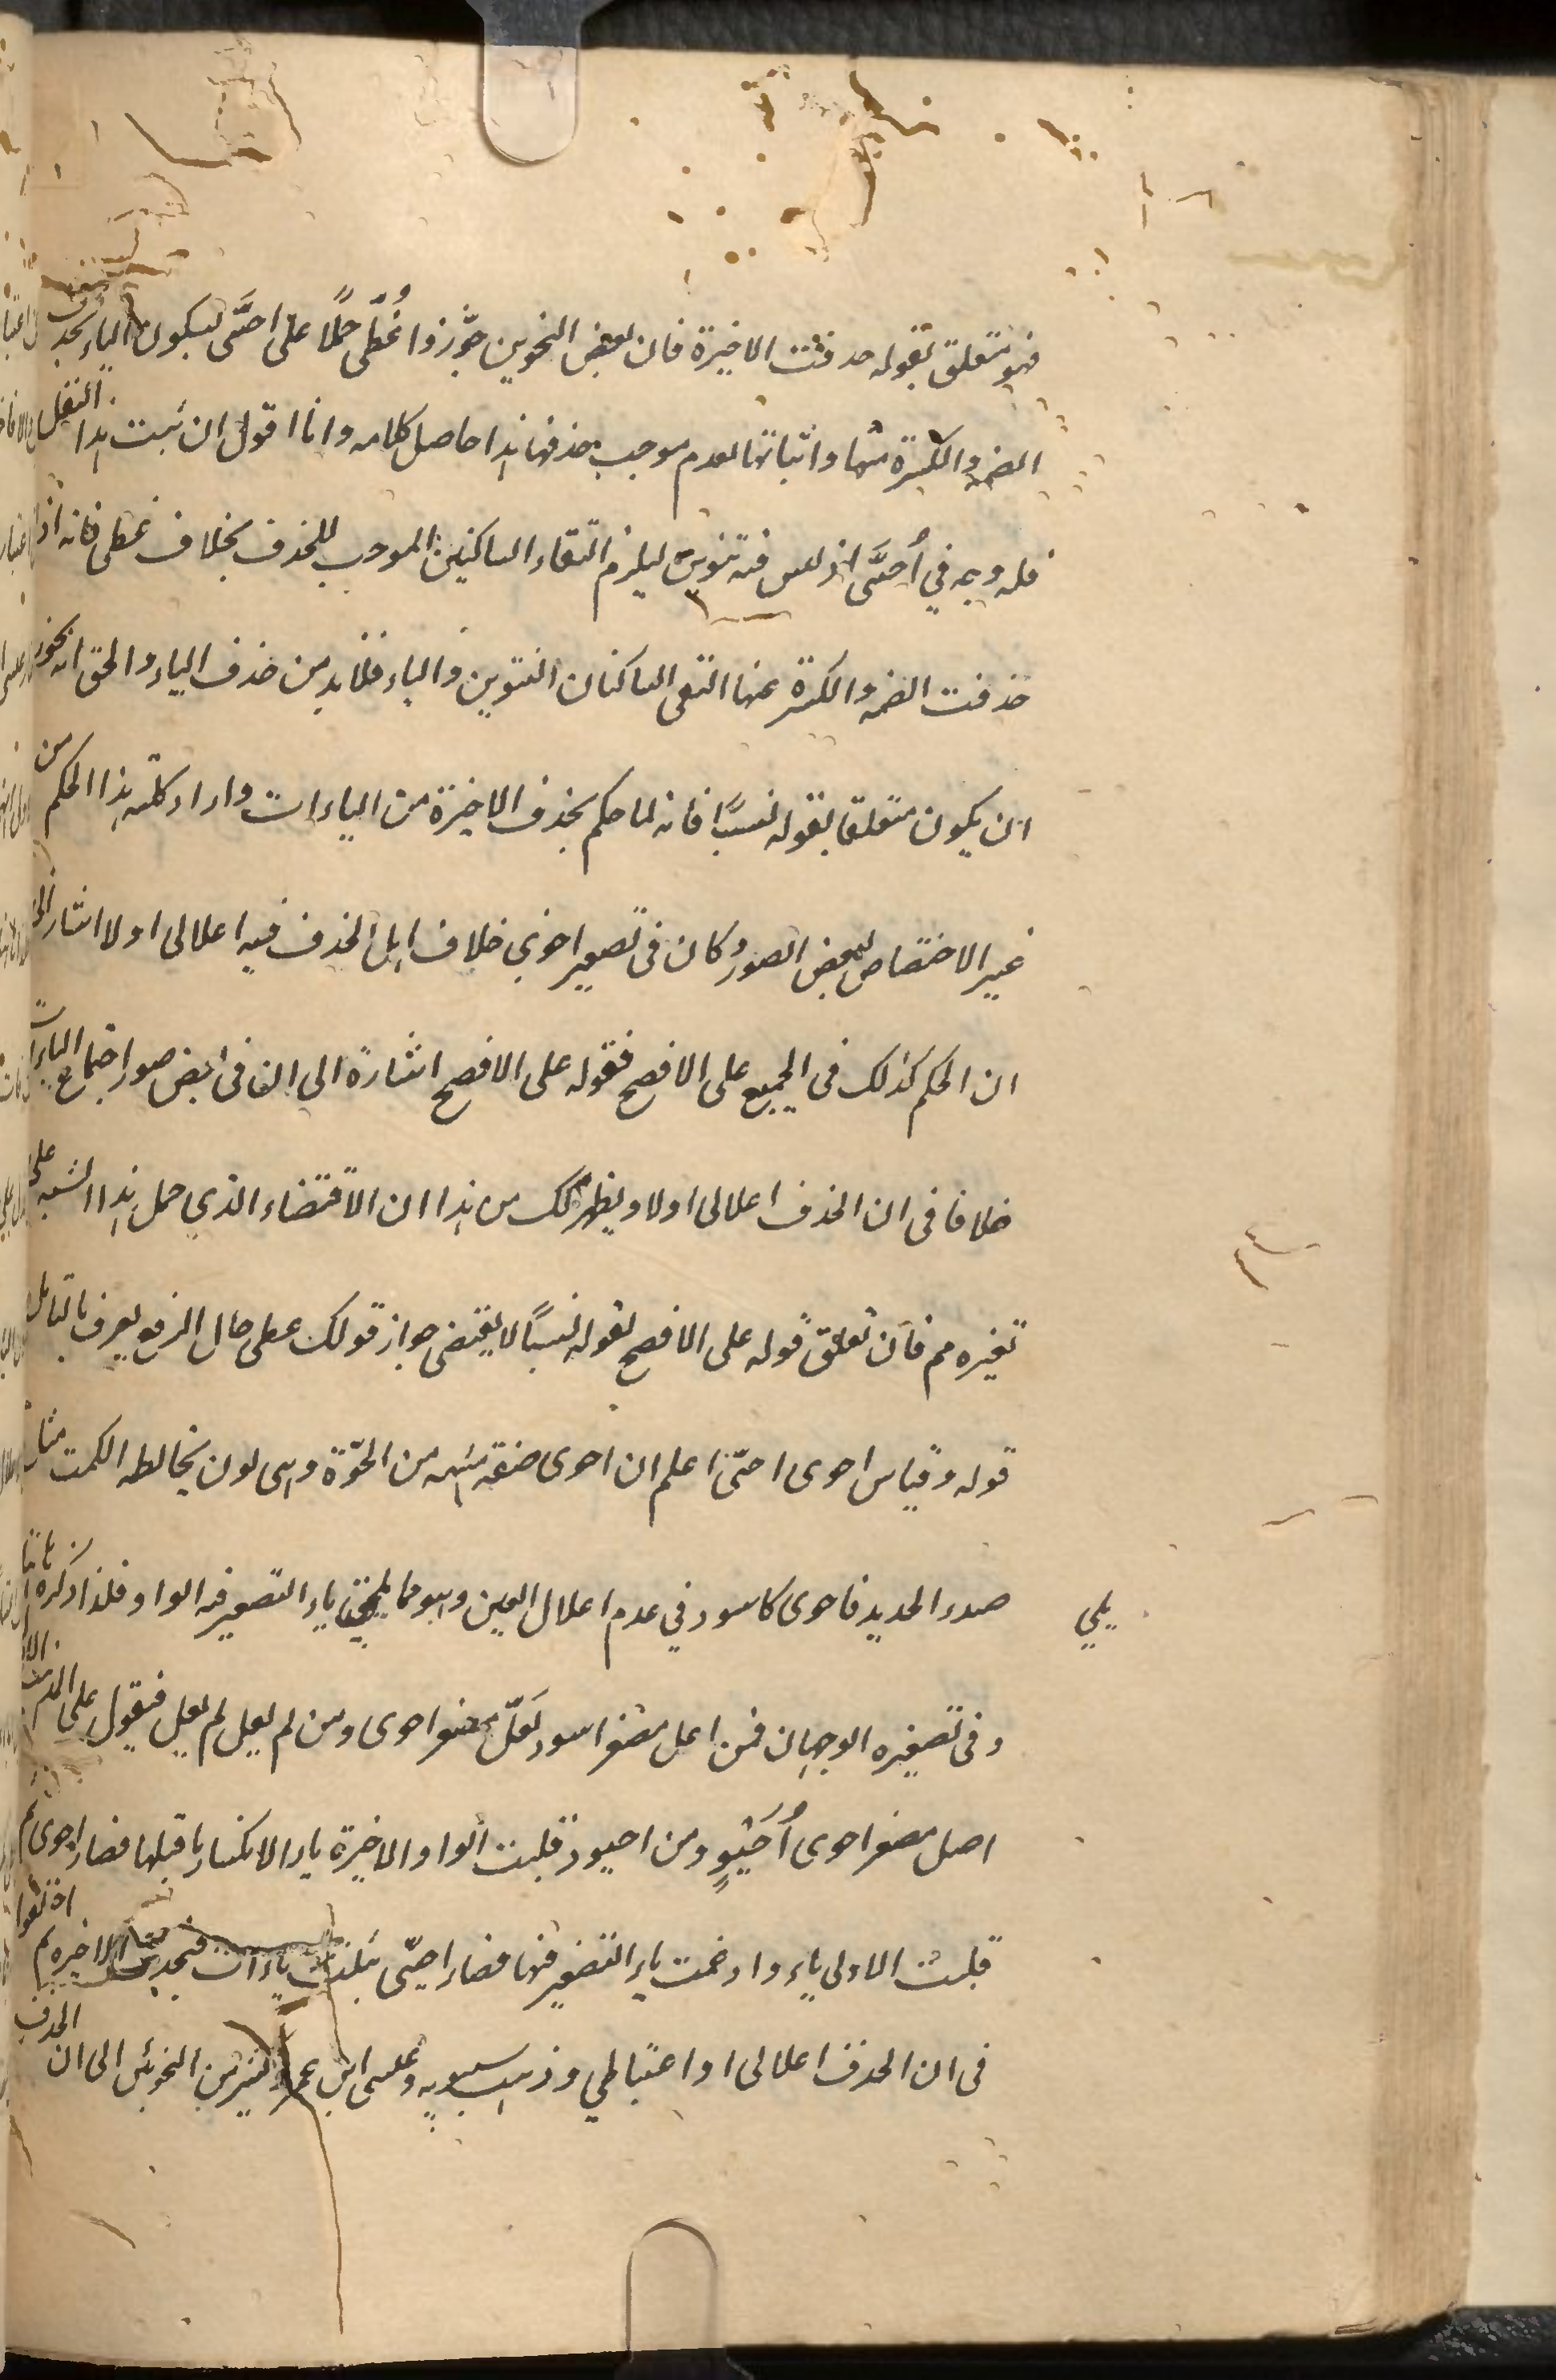 فهو متعلق بقوله حذفت الاخيرة فان بعض النحويين جوّزوا عُطَّى حملًا على احيَّى ليكون الياء بحذف
الضمة والكسرة منها واثباتها لعدم موجب حذفها هذا حاصل كلامه وانا اقول ان ثبت هذا النقل
فله وجه في أُحيَّى اذ ليس فيه تنوين ليلزم التقاء الساكنين الموجب للحذف بخلاف عطى فانه اذا
حذفت الضمة والكسرة عنها التقى الساكنان التنوين والياء فلابد من حذف الياء والحق انه يجوز
ان يكون متعلقا بقوله نسيًا فانه لما حكم بحذف الاخيرة من الياءات واراد كلية هذا الحكم من
غير الاختصاص ببعض الصور وكان في تصغير احوى خلاف ا هل الحذف فيه اعلالى اولا اشار الى
ان الحكم كذلك في الجميع على الافصح فقوله على الافصح اشارة الى ان في بعض صور اجتماع الياءات
خلافا في ان الحذف اعلالى اولا ويظهر لك من هذا ان الاقتضاء الذي حمل هذا الشبه على
تغيره مم فان تعلق قوله على الافصح بقوله نسيًا لا يقتضى جواز قولك عطى حال الرفع يعرف بالتامل
قوله وقياس احوى احيّ اعلم ان احوى صفة مشبهة من الحوّة وهى لون يخالطه الكمت مثل
صدء الحديد فاحوى كاسود في عدم اعلال العين وهو مما يلي ياء التصغير فيه الواو فلذا ذكره ثانيا
يلي
وفى تصغيره الوجهان فمن اعل مصغر اسود يَعلّ مصغر احوى ومن لم يعل لم يعل فيقول على
اصل مصغر احوى أُحَيْوٍ ومن احيود قلبت الواو الاخيرة ياء لانكسار ما قبلها فصار احيوى ثم
قلبت الاولى ياء وادغمت ياء التصغير فيها فصار احيّى بثلث ياءات فيحذف الاخيرة ثم اختلفوا
فى ان الحذف اعلالى او اعتباطي وذهب سيبويه وعيسى ابن عمر وكثير من النحويين الى ان الحذف